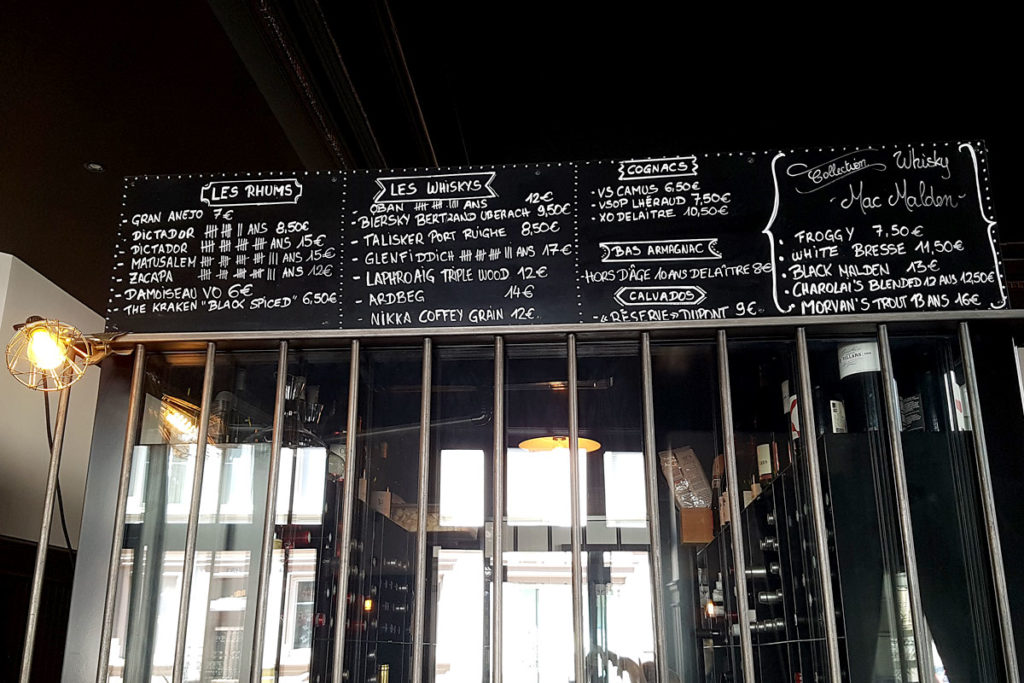 LES RHUMS
- GRAN ANEJO 7€
- DICTADOR ANS 8,50€
- DICTADOR ANS 15€
- MATUSALEM ANS 15€
- ZACAPA ANS 12€
- DAMOISEAU VO 6€
- THE KRAKEN "BLACK SPICED" 6,50€
LES WHISKYS
OBAN ANS 12€
- BIERSKY BERTRAND UBERACH 9,50€
- TALISKER PORT RUIGHE 8,50€
- GLENFIDDICH ANS 17€
- LAPHROAIG TRIPLE WOOD 12€
- ARDBEG 14€
- NIKKA COFFEY GRAIN 12€
COGNACS
- VS CAMUS 6,50€
- VSOP LHÉRAUD 7,50€
- XO DELAÎTRE 10,50€
BAS ARMAGNAC
HORS D'ÂGE 10 ANS DELAÎTRE 8€
CALVADOS
- «RÉSERVE» DUPONT 9€
Collection Whisky
- Mac Malden -
- FROGGY 7,50€
- WHITE BRESSE 11,50€
- BLACK MALDEN 13€
- CHAROLAIS BLENDED 12 ANS 12,50€
- MORVAN'S TROUT 13 ANS 16€